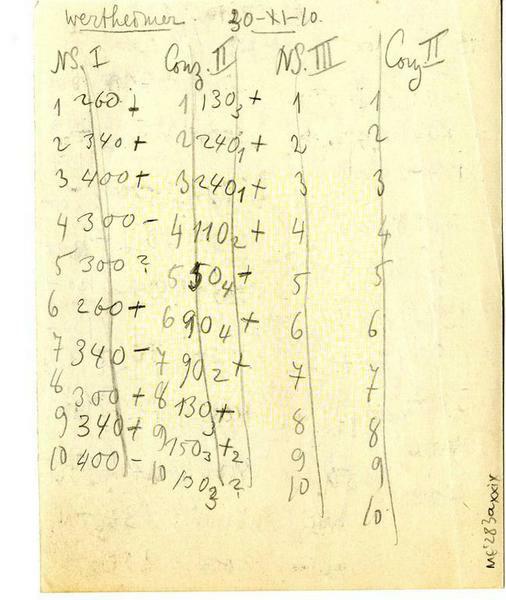 Wertheimer. 30-XI-10.
NS. I Conz. II NS. III Conz II
1 260 + 1 130₃ + 1 1
2 340 + 2 240₁ + 2 2
3 400 + 3 240₁ + 3 3
4 300 - 4 110₂ + 4 4
5 300 ? 5 50₄ + 5 5
6 260 + 6 90₄ + 6 6
7 340 - 7 90₂ + 7 7
8 300 + 8 130₃ + 8 8
9 340 + 9 150₃ +₂ 9 9
10 400 - 10 130₃ ? 10 10